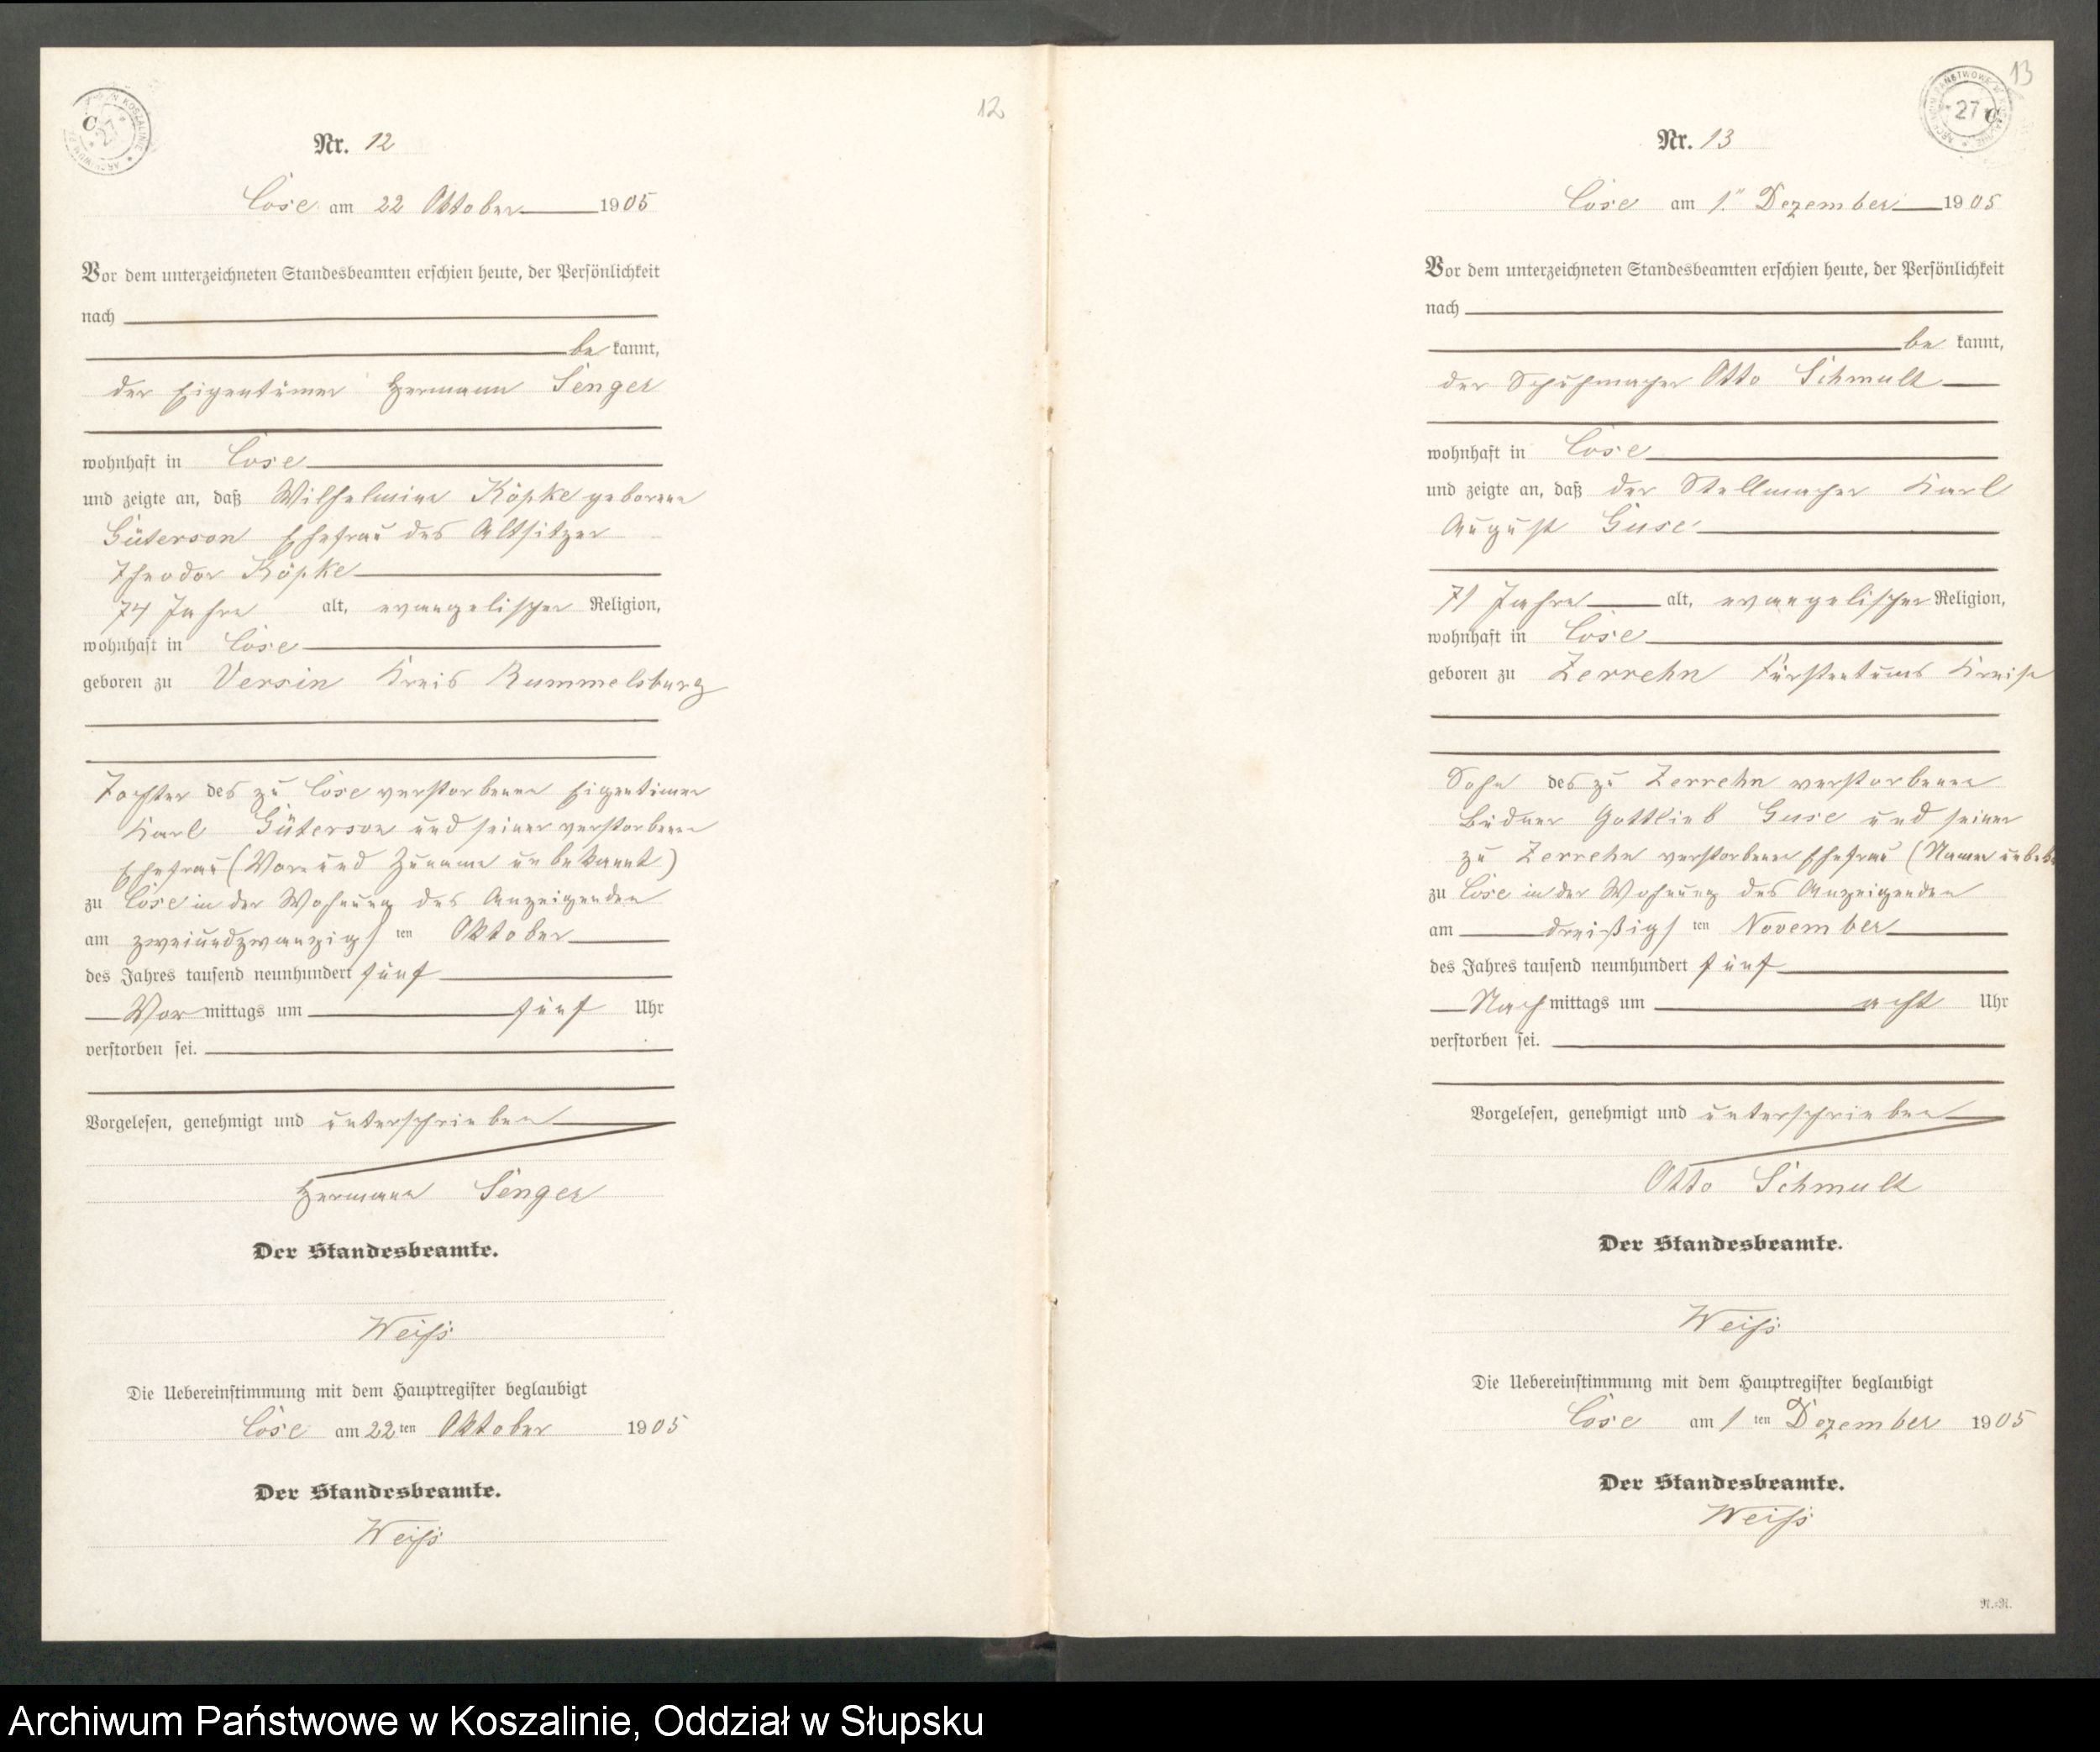 12
Nr. 12
Cöse am 22 Oktober 1905
Vor dem unterzeichneten Standesbeamten erschien heute, der Persönlichkeit
nach
be kannt,
der Eigentümer Hermann Senger
wohnhaft in Cöse
und zeigte an, daß Wilhelmine Köpke geborene
Güterson Ehefrau des Altsitzer
Theodor Köpke
74 Jahre alt, evangelischer Religion,
wohnhaft in Cöse
geboren zu Versin Kreis Rummelsburg
Tochter des zu Cöse verstorbenen Eigentümer
Karl Güterson und seiner verstorbenen
Ehefrau (Vor und Zuname unbekannt)
zu Cöse in der Wohnung des Anzeigenden
am zweiundzwanzigsten Oktober
des Jahres tausend neunhundert fünf
Vor mittags um fünf Uhr
verstorben sei.
Vorgelesen, genehmigt und unterschrieben
Hermann Senger
Der Standesbeamte.
Weiß
Die Uebereinstimmung mit dem Hauptregister beglaubigt
Cöse am 22ten Oktober 1905
Der Standesbeamte.
Weiß
13
ARCHIWUM PAŃSTWOWE
27
Nr. 13
Cöse am 1. Dezember 1905
Vor dem unterzeichneten Standesbeamten erschien heute, der Persönlichkeit
nach
be kannt,
der Schuhmacher Otto Schmult
wohnhaft in Cöse
und zeigte an, daß der Stellmacher Karl
August Guse
71 Jahre alt, evangelischer Religion,
wohnhaft in Cöse
geboren zu Zerrehn Fürstentums Kreise
Sohn des zu Zerrehn verstorbenen
Büdner Gottlieb Guse und seiner
zu Zerrehn verstorbenen Ehefrau (Namen unbek
zu Cöse in der Wohnung des Anzeigenden
am dreißigsten November
des Jahres tausend neunhundert fünf
Nach mittags um acht Uhr
verstorben sei.
Vorgelesen, genehmigt und unterschrieben
Otto Schmult
Der Standesbeamte.
Weiß
Die Uebereinstimmung mit dem Hauptregister beglaubigt
Cöse am 1 ten Dezember 1905
Der Standesbeamte.
Weiß
N.=R.
Archiwum Państwowe w Koszalinie, Oddział w Słupsku